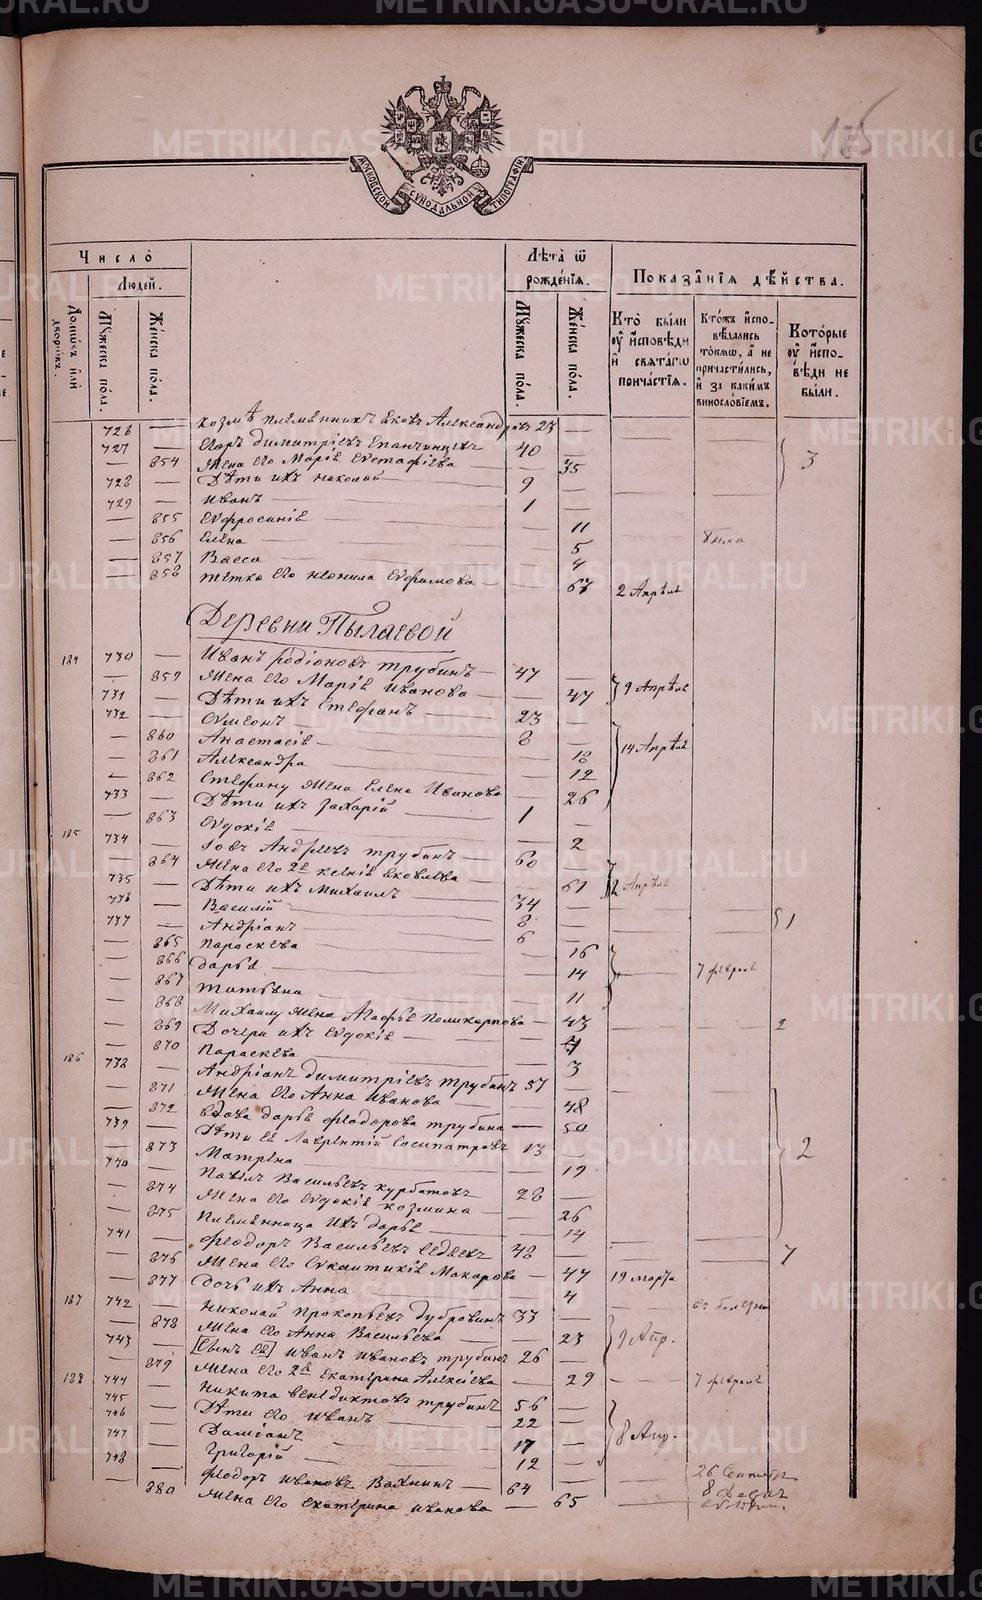 175
МОСКОВСКОЙ СУНОДАЛЬНОЙ ТИПОГРАФІИ
Число̀
Людей.
Домѡвъ или дворѡвъ.
Мꙋжеска пола.
Женска пола.
Лѣта ѿ рожденїѧ.
Мꙋжеска пола.
Женска пола.
Показанїѧ дѣйства.
Кто были оу исповѣди и свѧтагѡ причастїѧ.
Ктожъ исповѣдались токмѡ, а не причастились, и за какимъ винословїемъ.
Которые оу исповѣди не были.
726 — Козмѣ племянникъ Яковъ Александровъ 23 —
727 — Егоръ Димитріевъ 40 — 3
— 854 Жена его Марія Евстафіева — 35
728 — Дѣти ихъ Николай 9 —
729 — Иванъ 1 —
— 855 Евфросинія — 11
— 856 Елена — 5
— 857 Васса — 4
— 858 Тетка его Неонила Евфимова — 67 2 Апрѣля
Деревни Пылаевой
184 730 — Иванъ Родіоновъ Трубинъ 47 —
— 859 Жена его Марія Иванова — 47 9 Апрѣля
731 — Дѣти ихъ Стефанъ 23 —
732 — Сумеонъ 8 —
— 860 Анастасія — 18 14 Апрѣля
— 861 Александра — 12
— 862 Стефану жена Елена Иванова — 26
733 — Дѣти ихъ Захарій 1 —
— 863 Евдокія — 2
185 734 — Іовъ Андреевъ Трубинъ 60 —
— 864 Жена его 2я Ксенія Яковлева — 61 2 Апрѣля
735 — Дѣти ихъ Михаилъ 34 —
736 — Василій 8 — 1
737 — Андріанъ 6 —
— 865 Параскева — 16
— 866 Дарья — 14 7 февраля
— 867 Татьяна — 11
— 868 Михаилу жена Агафья Поликарпова — 43 2
— 869 Дочери ихъ Евдокія —
— 870 Параскева — 3
186 738 — Андріанъ Димитріевъ Трубинъ 57 —
— 871 Жена его Анна Иванова — 48
— 872 Вдова Дарья Феодорова Трубина — 50
739 — Дѣти ея Лаврентій Сосипатровъ 13 — 2
— 873 Матрена — 19
740 — Павелъ Васильевъ Курбатовъ 28 —
— 874 Жена его Евдокія Козмина — 26
— 875 Племянница ихъ Дарья — 14
741 — Феодоръ Васильевъ 48 — 7
— 876 Жена его Синклитикія Макарова — 47 19 марта
— 877 Дочь ихъ Анна — 4
187 742 — Николай Прокопьевъ Дубровинъ 33 —
— 878 Жена его Анна Васильева — 23 9 Апр.
743 — [Сынъ ея] Иванъ Ивановъ Трубинъ 26 —
— 879 Жена его 2я Екатерина Алексіева — 29 7 февраля
188 744 — Никита Венедиктовъ Трубинъ 56 —
745 — Дѣти его Иванъ 22 —
746 — Даміанъ 17 — 8 Апр.
747 — Григорій 12 —
748 — Феодоръ Ивановъ Вахнинъ 64 — 26 Сентября
— 880 Жена его Екатерина Иванова — 65
METRIKI.GASO-URAL.RU